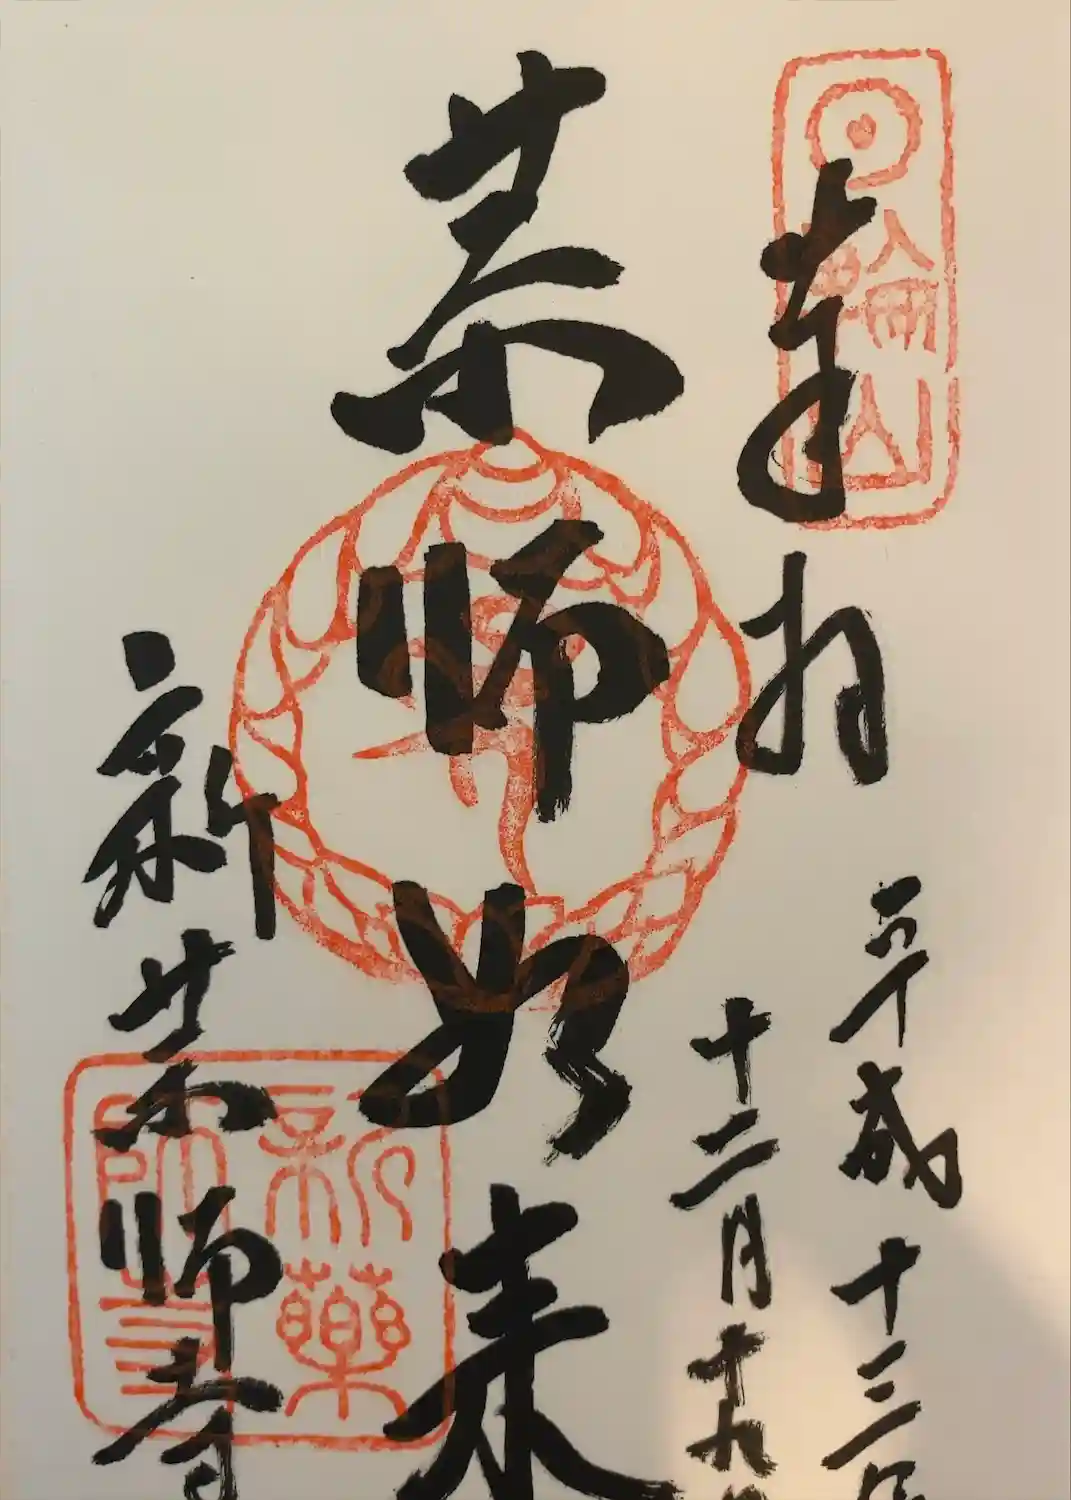 奉拝
日輪山
平成十三年
十二月十九日
薬師如来
新薬師寺
新薬師寺